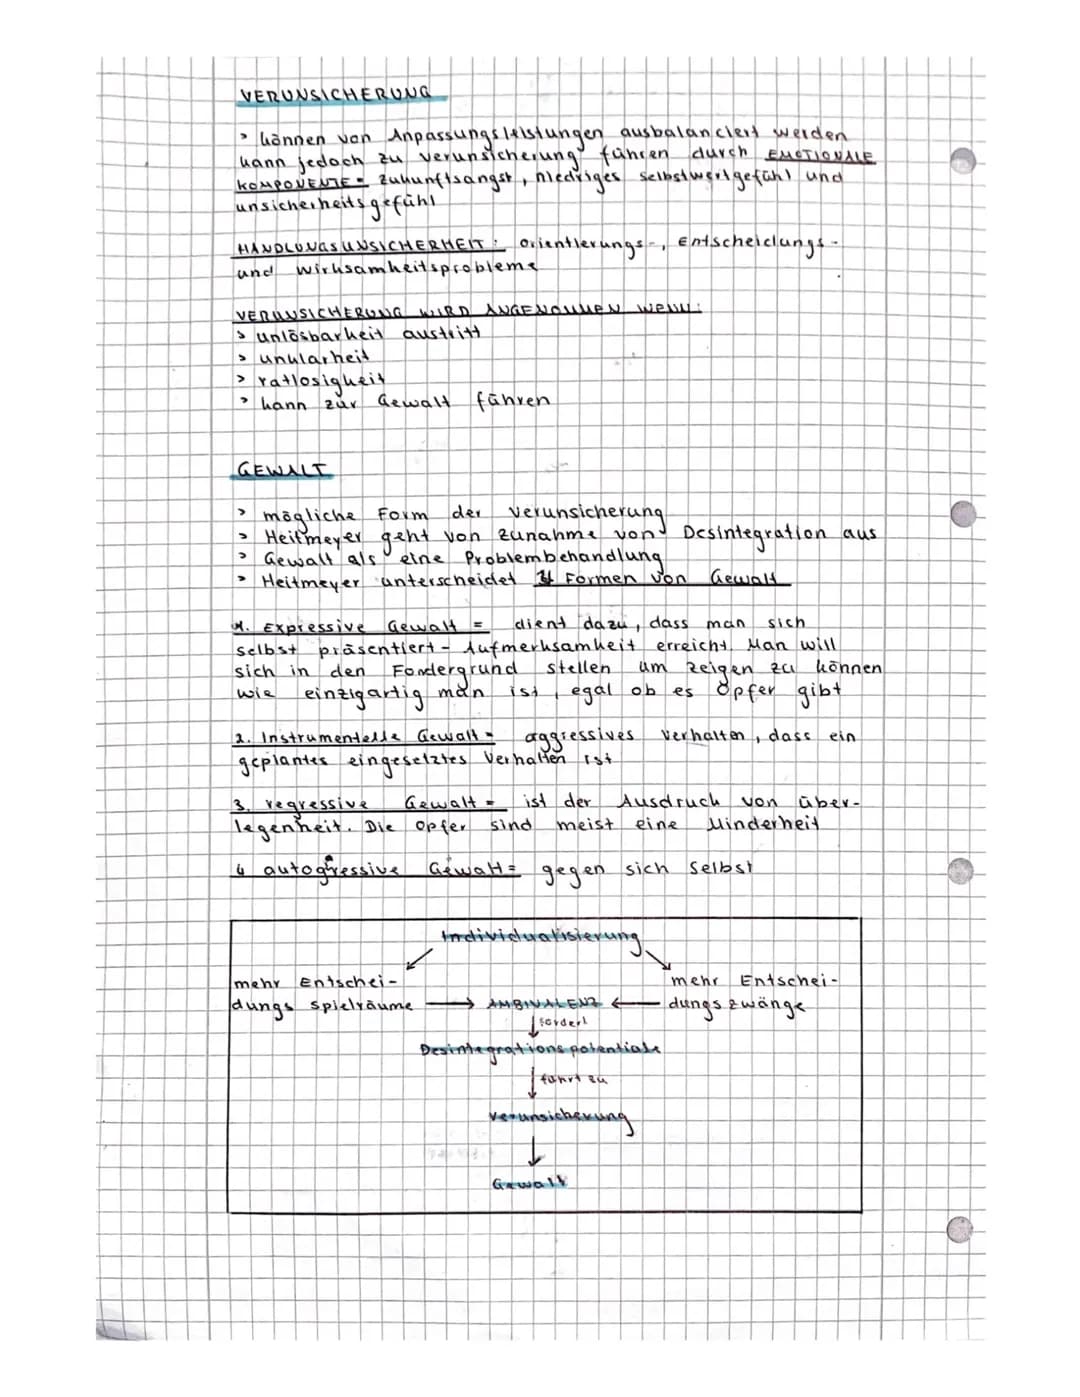 VERUNSICHERUNG
> können von Anpassungsleistungen ausbalanciert werden
kann jedoch zu verunsicherung führen durch EMOTIONALE
KOMPONENTE = Zukunftsangst, niedriges selbstwertgefühl und
unsicherheitsgefühl
HANDLUNGSUNSICHERHEIT: orientierungs-, Entscheidungs-
und wirksamkeitsprobleme
VERUNSICHERUNG WIRD ANGENOMMEN WENN:
> unlösbarkeit austritt
> unklarheit
> ratlosigkeit
> kann zur Gewalt führen
GEWALT
> mögliche Form der verunsicherung
> Heitmeyer geht von zunahme von Desintegration aus
> Gewalt als eine Problembehandlung
> Heitmeyer unterscheidet 4 Formen von Gewalt
1. Expressive Gewalt = dient dazu, dass man sich
selbst präsentiert - Aufmerksamkeit erreicht. Man will
sich in den Fordergrund stellen um zeigen zu können
wie einzigartig man ist, egal ob es Opfer gibt
2. Instrumentelle Gewalt = aggressives verhalten, dass ein
geplantes eingesetztes Verhalten ist
3. regressive Gewalt = ist der Ausdruck von über-
legenheit. Die Opfer sind meist eine Minderheit
4 autogressive Gewalt = gegen sich selbst
Individualisierung
mehr Entschei- mehr Entschei-
dungs spielräume → AMBIVALENZ ← dungszwänge
↓ fördert
Desintegrationspotentiale
↓ führt zu
Verunsicherung
↓
Gewalt